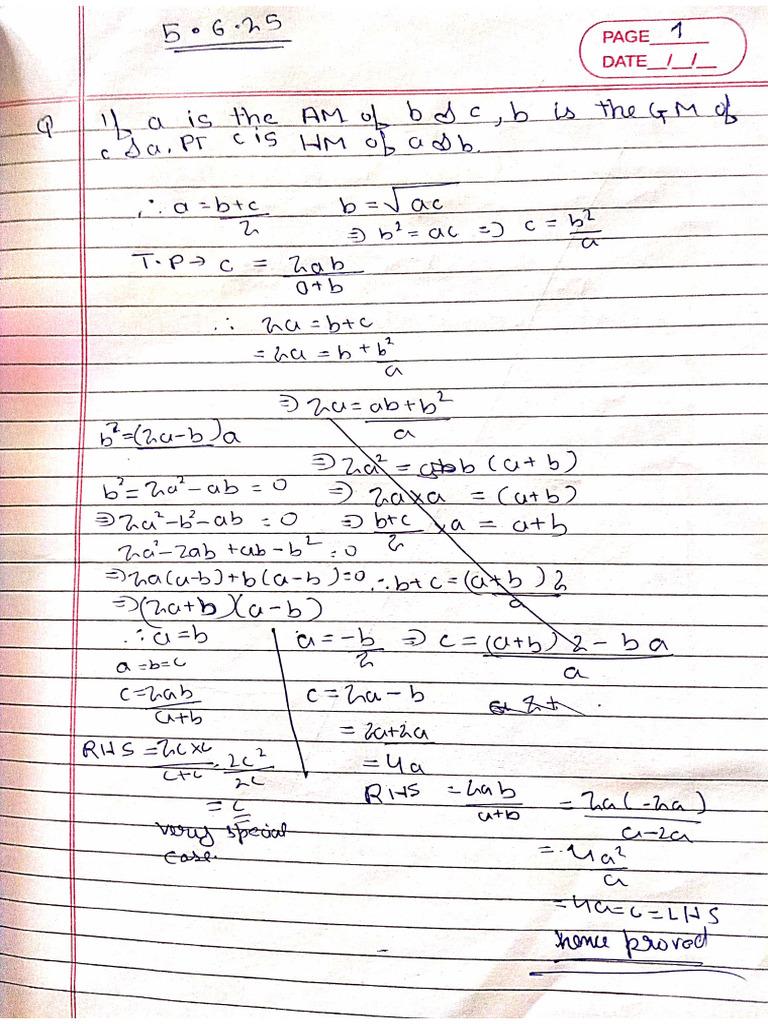 5.6.25
PAGE 1
DATE __/__/__
Q If a is the AM of b & c, b is the GM of
c & a. PT c is HM of a & b.
∴ a = b+c/2   b = √ac
⇒ b² = ac ⇒ c = b²/a
T.P → c = 2ab/a+b
∴ 2a = b+c
= 2a = b + b²/a
⇒ 2a = ab+b²/a
b² = (2a-b)a
⇒ 2a² = b (a+b)
b² = 2a² - ab = 0
⇒ 2a×a = (a+b)
⇒ 2a² - b² - ab = 0
⇒ b+c/2 × a = a+b
2a² - 2ab + ab - b² = 0
⇒ 2a(a-b) + b(a-b) = 0
∴ b+c = (a+b)2/a
⇒ (2a+b)(a-b)
∴ a = b
a = -b/2
⇒ c = (a+b)2 - ba/a
a = b = c
c = 2ab/a+b
c = 2a - b
= 2a+2a
= 4a
RHS = 2c×c/c+c = 2c²/2c
= c
very special
case.
RHS = 2ab/a+b = 2a(-2a)/a-2a
= -4a²/a
= 4a = c = LHS
hence proved